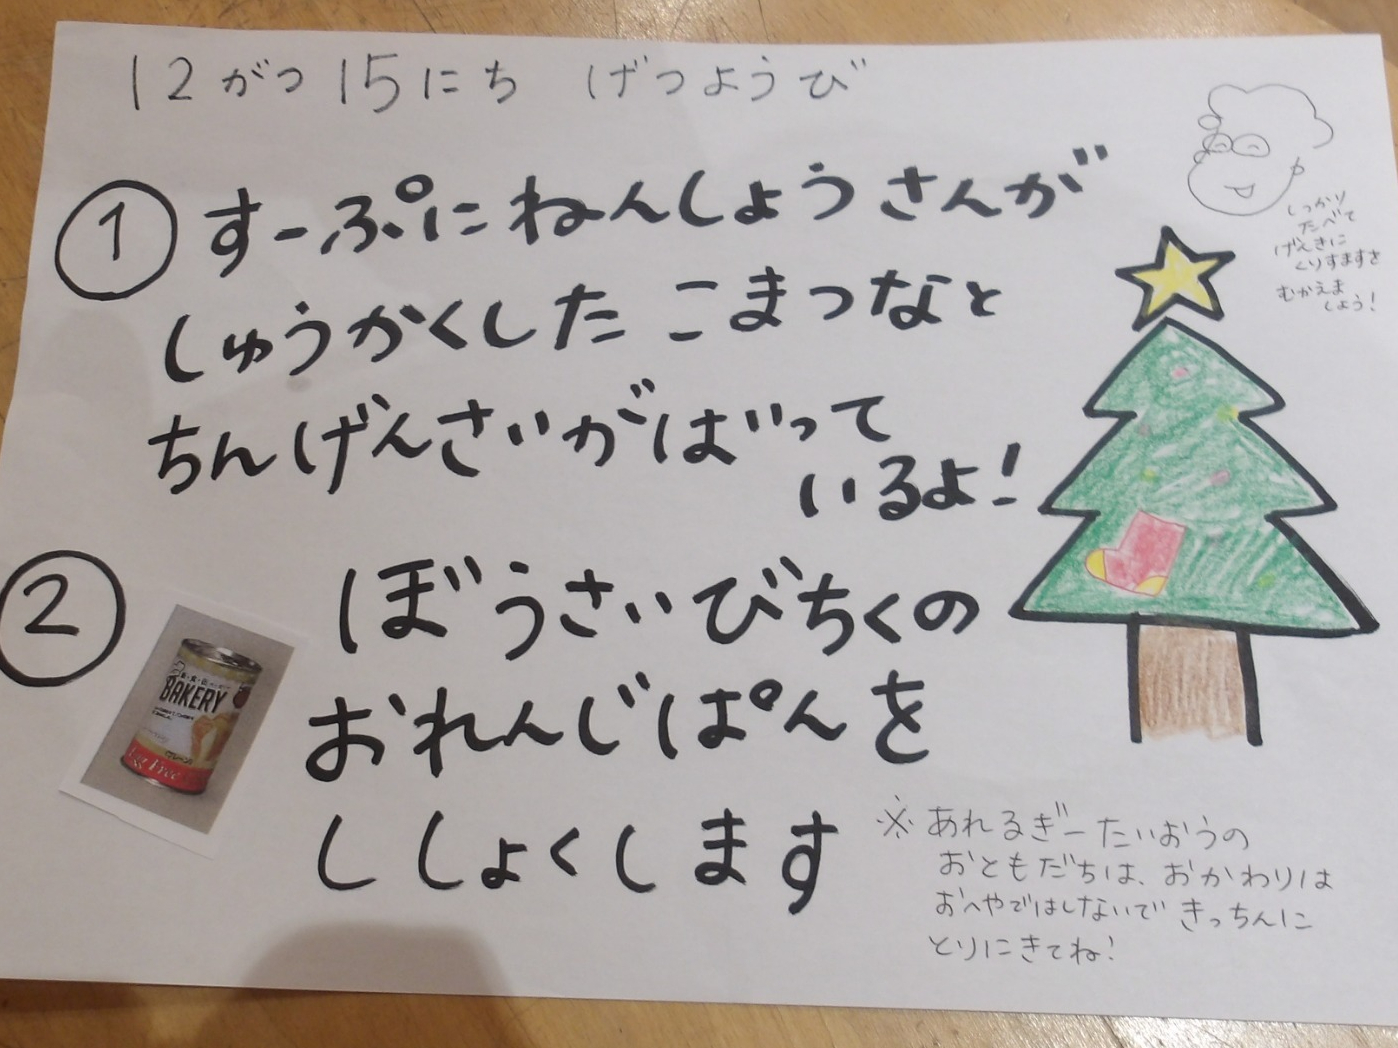 12がつ15にち げつようび
① すーぷにねんしょうさんが
しゅうかくした こまつなと
ちんげんさいがはいって
いるよ!
しっかり
たべて
げんきに
くりすますを
むかえま
しょう!
② ぼうさいびちくの
おれんじぱんを
ししょくします
BAKERY
Egg Free
※あれるぎーたいおうの
おともだちは、おかわりは
おへやではしないで きっちんに
とりにきてね!